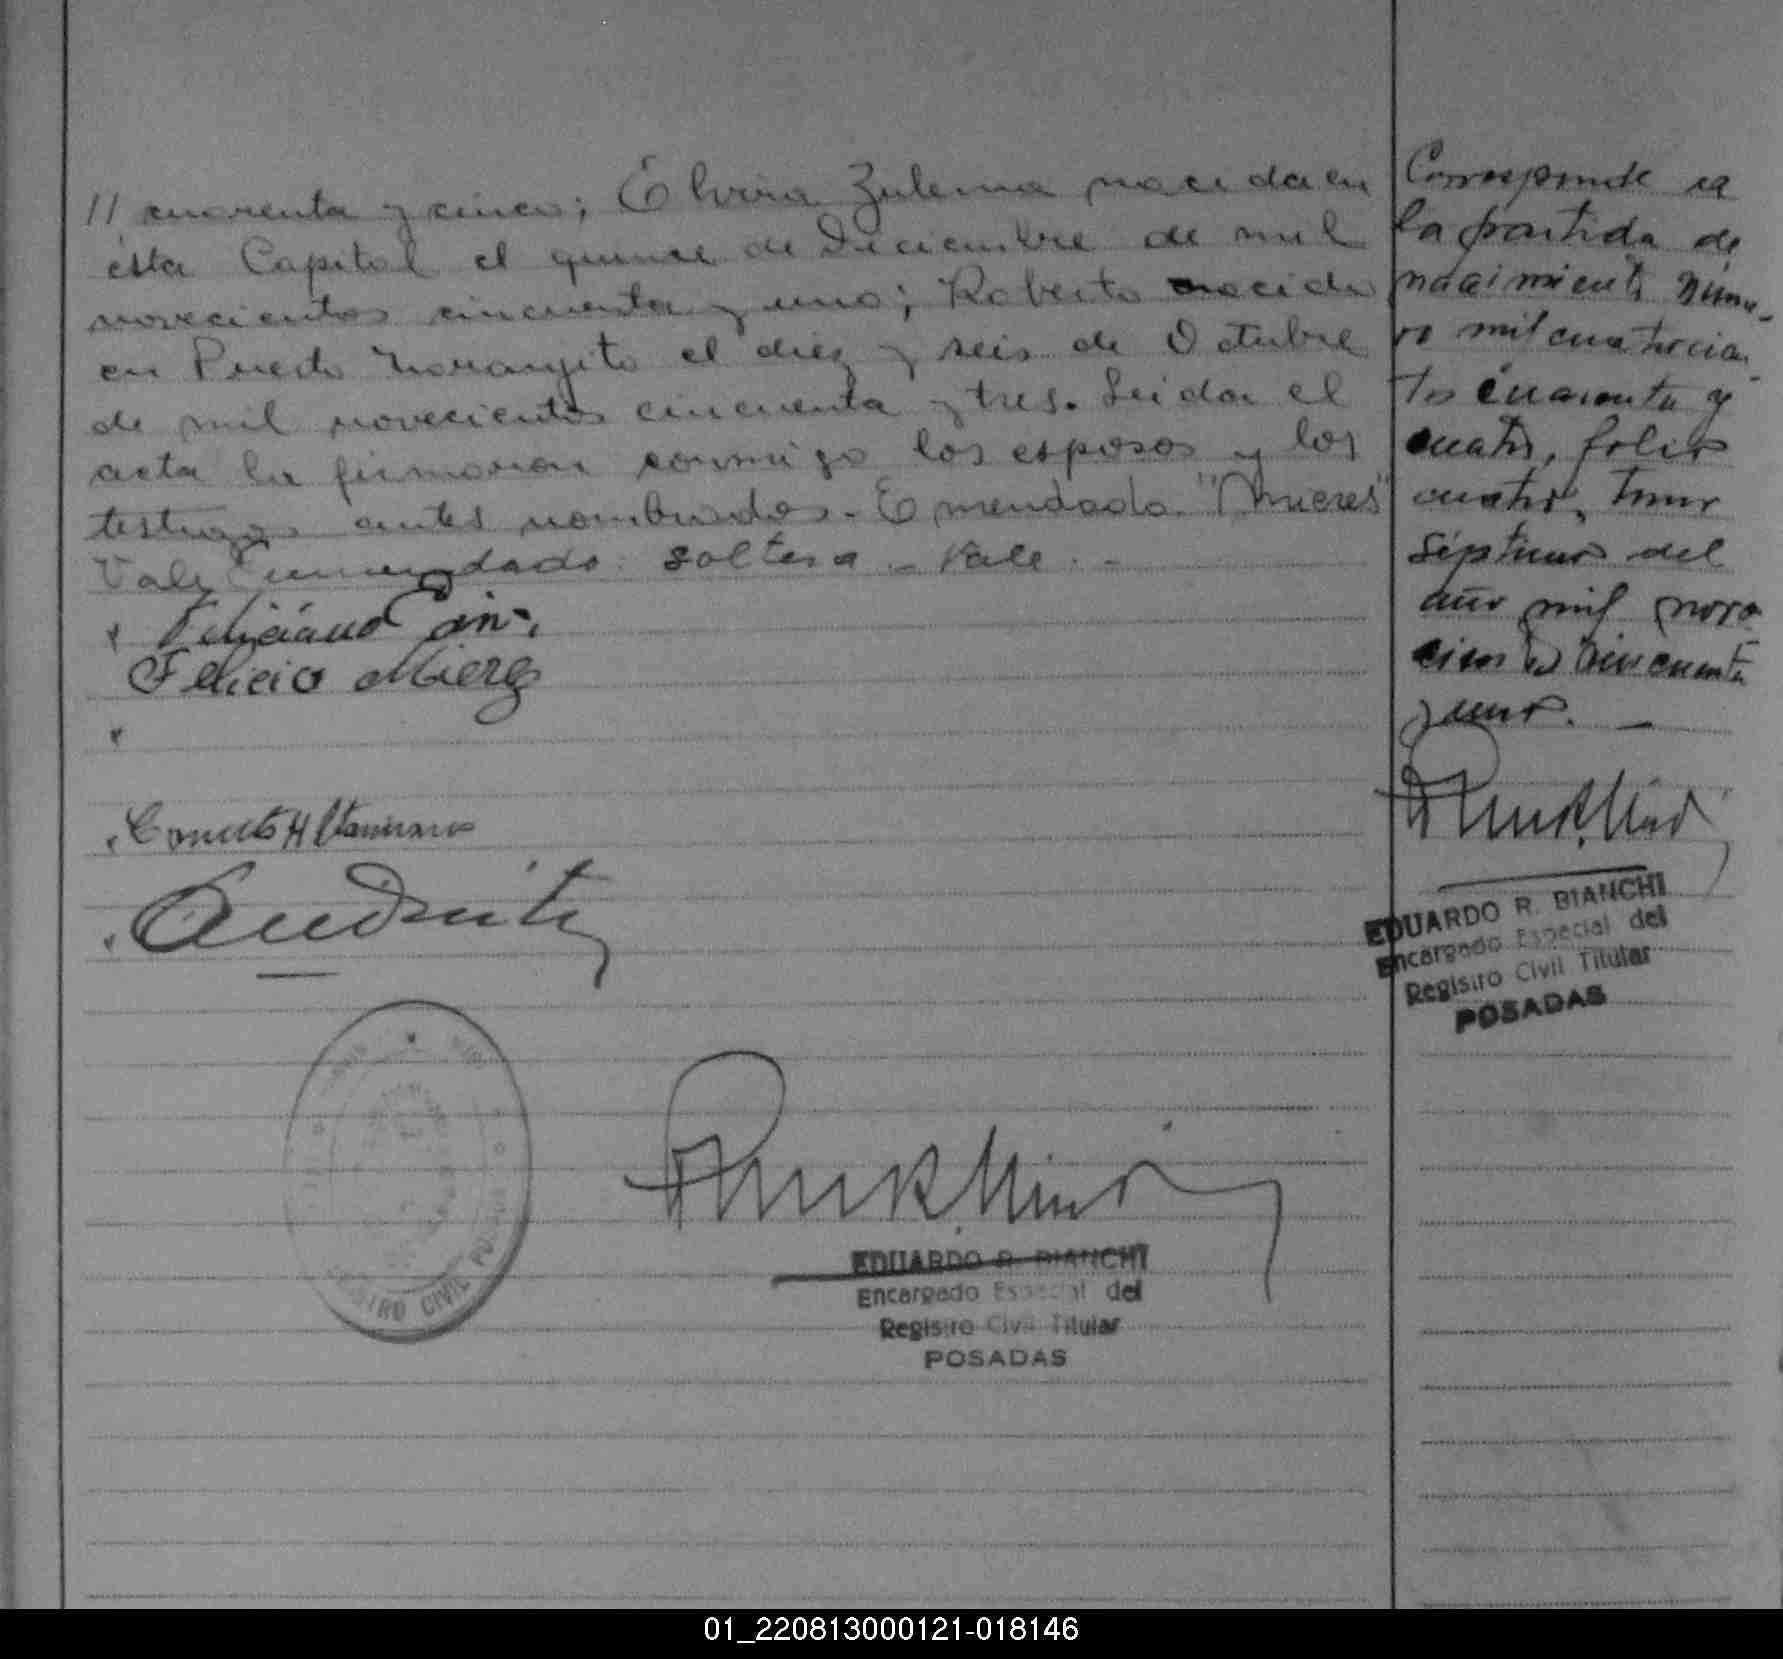 // cuarenta y cinco; Elvira Zulema nacida en
ésta Capital el quince de Diciembre de mil
novecientos cincuenta y uno; Roberto nacido
en Puerto Naranjito el diez y seis de Octubre
de mil novecientos cincuenta y tres. Leida el
acta la firmaron conmigo los esposos y los
testigos antes nombrados.- Emendado "Mieres"
Vale Enmendado: soltera - Vale. -
Feliciano
Felicio Mierez
EDUARDO R. BIANCHI
Encargado Especial del
Registro Civil Titular
POSADAS
REGISTRO CIVIL POSADAS
Corresponde a
la partida de
nacimiento Núme-
ro mil cuatrocien-
tos cuarenta y
cuatro, folio
cuatro, tomo
séptimo del
año mil nove
cientos cincuenta
y uno. -
EDUARDO R. BIANCHI
Encargado Especial del
Registro Civil Titular
POSADAS
01_220813000121-018146